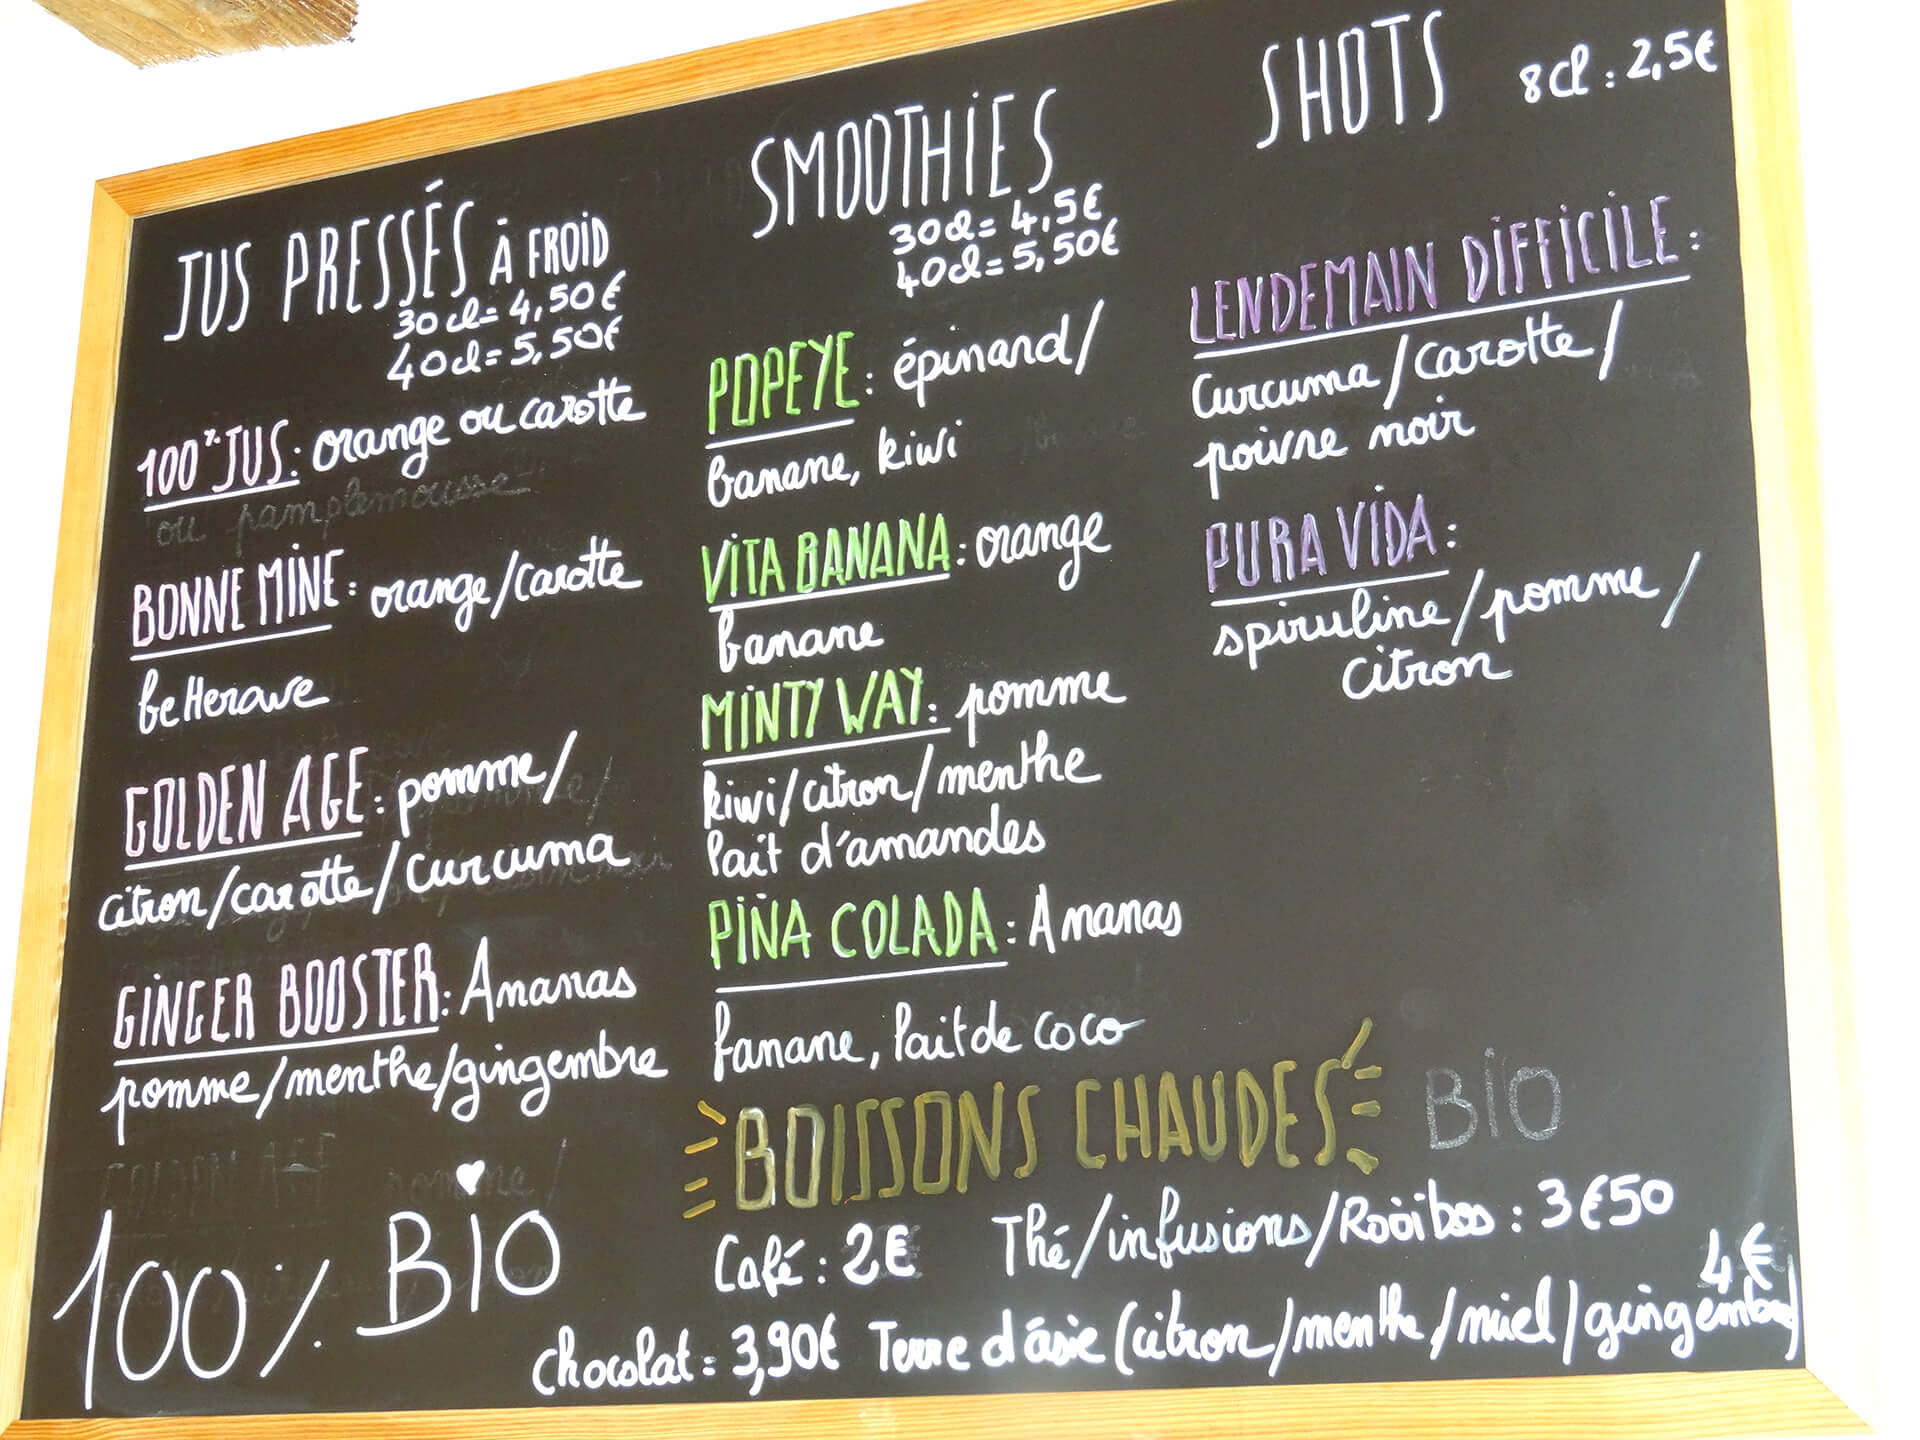 JUS PRESSÉS À FROID
30 cl = 4,50€
40 cl = 5,50€
100% JUS: orange ou carotte
ou pamplemousse
BONNE MINE: orange/carotte
betterave
GOLDEN AGE: pomme/
citron/carotte/curcuma
GINGER BOOSTER: Ananas
pomme/menthe/gingembre
100% BIO
SMOOTHIES
30cl = 4,5€
40cl = 5,50€
POPEYE: épinard/
banane, kiwi
VITA BANANA: orange
banane
MINTY WAY: pomme
kiwi/citron/menthe
lait d'amandes
PIÑA COLADA: Ananas
banane, lait de coco
SHOTS 8cl: 2,5€
LENDEMAIN DIFFICILE:
Curcuma/carotte/
poivre noir
PURA VIDA:
spiruline/pomme/
citron
BOISSONS CHAUDES BIO
Café: 2€ Thé/infusions/Rooibos: 3€50
4€
chocolat = 3,90€ Terre d'ásie (citron/menthe/miel/gingembre)